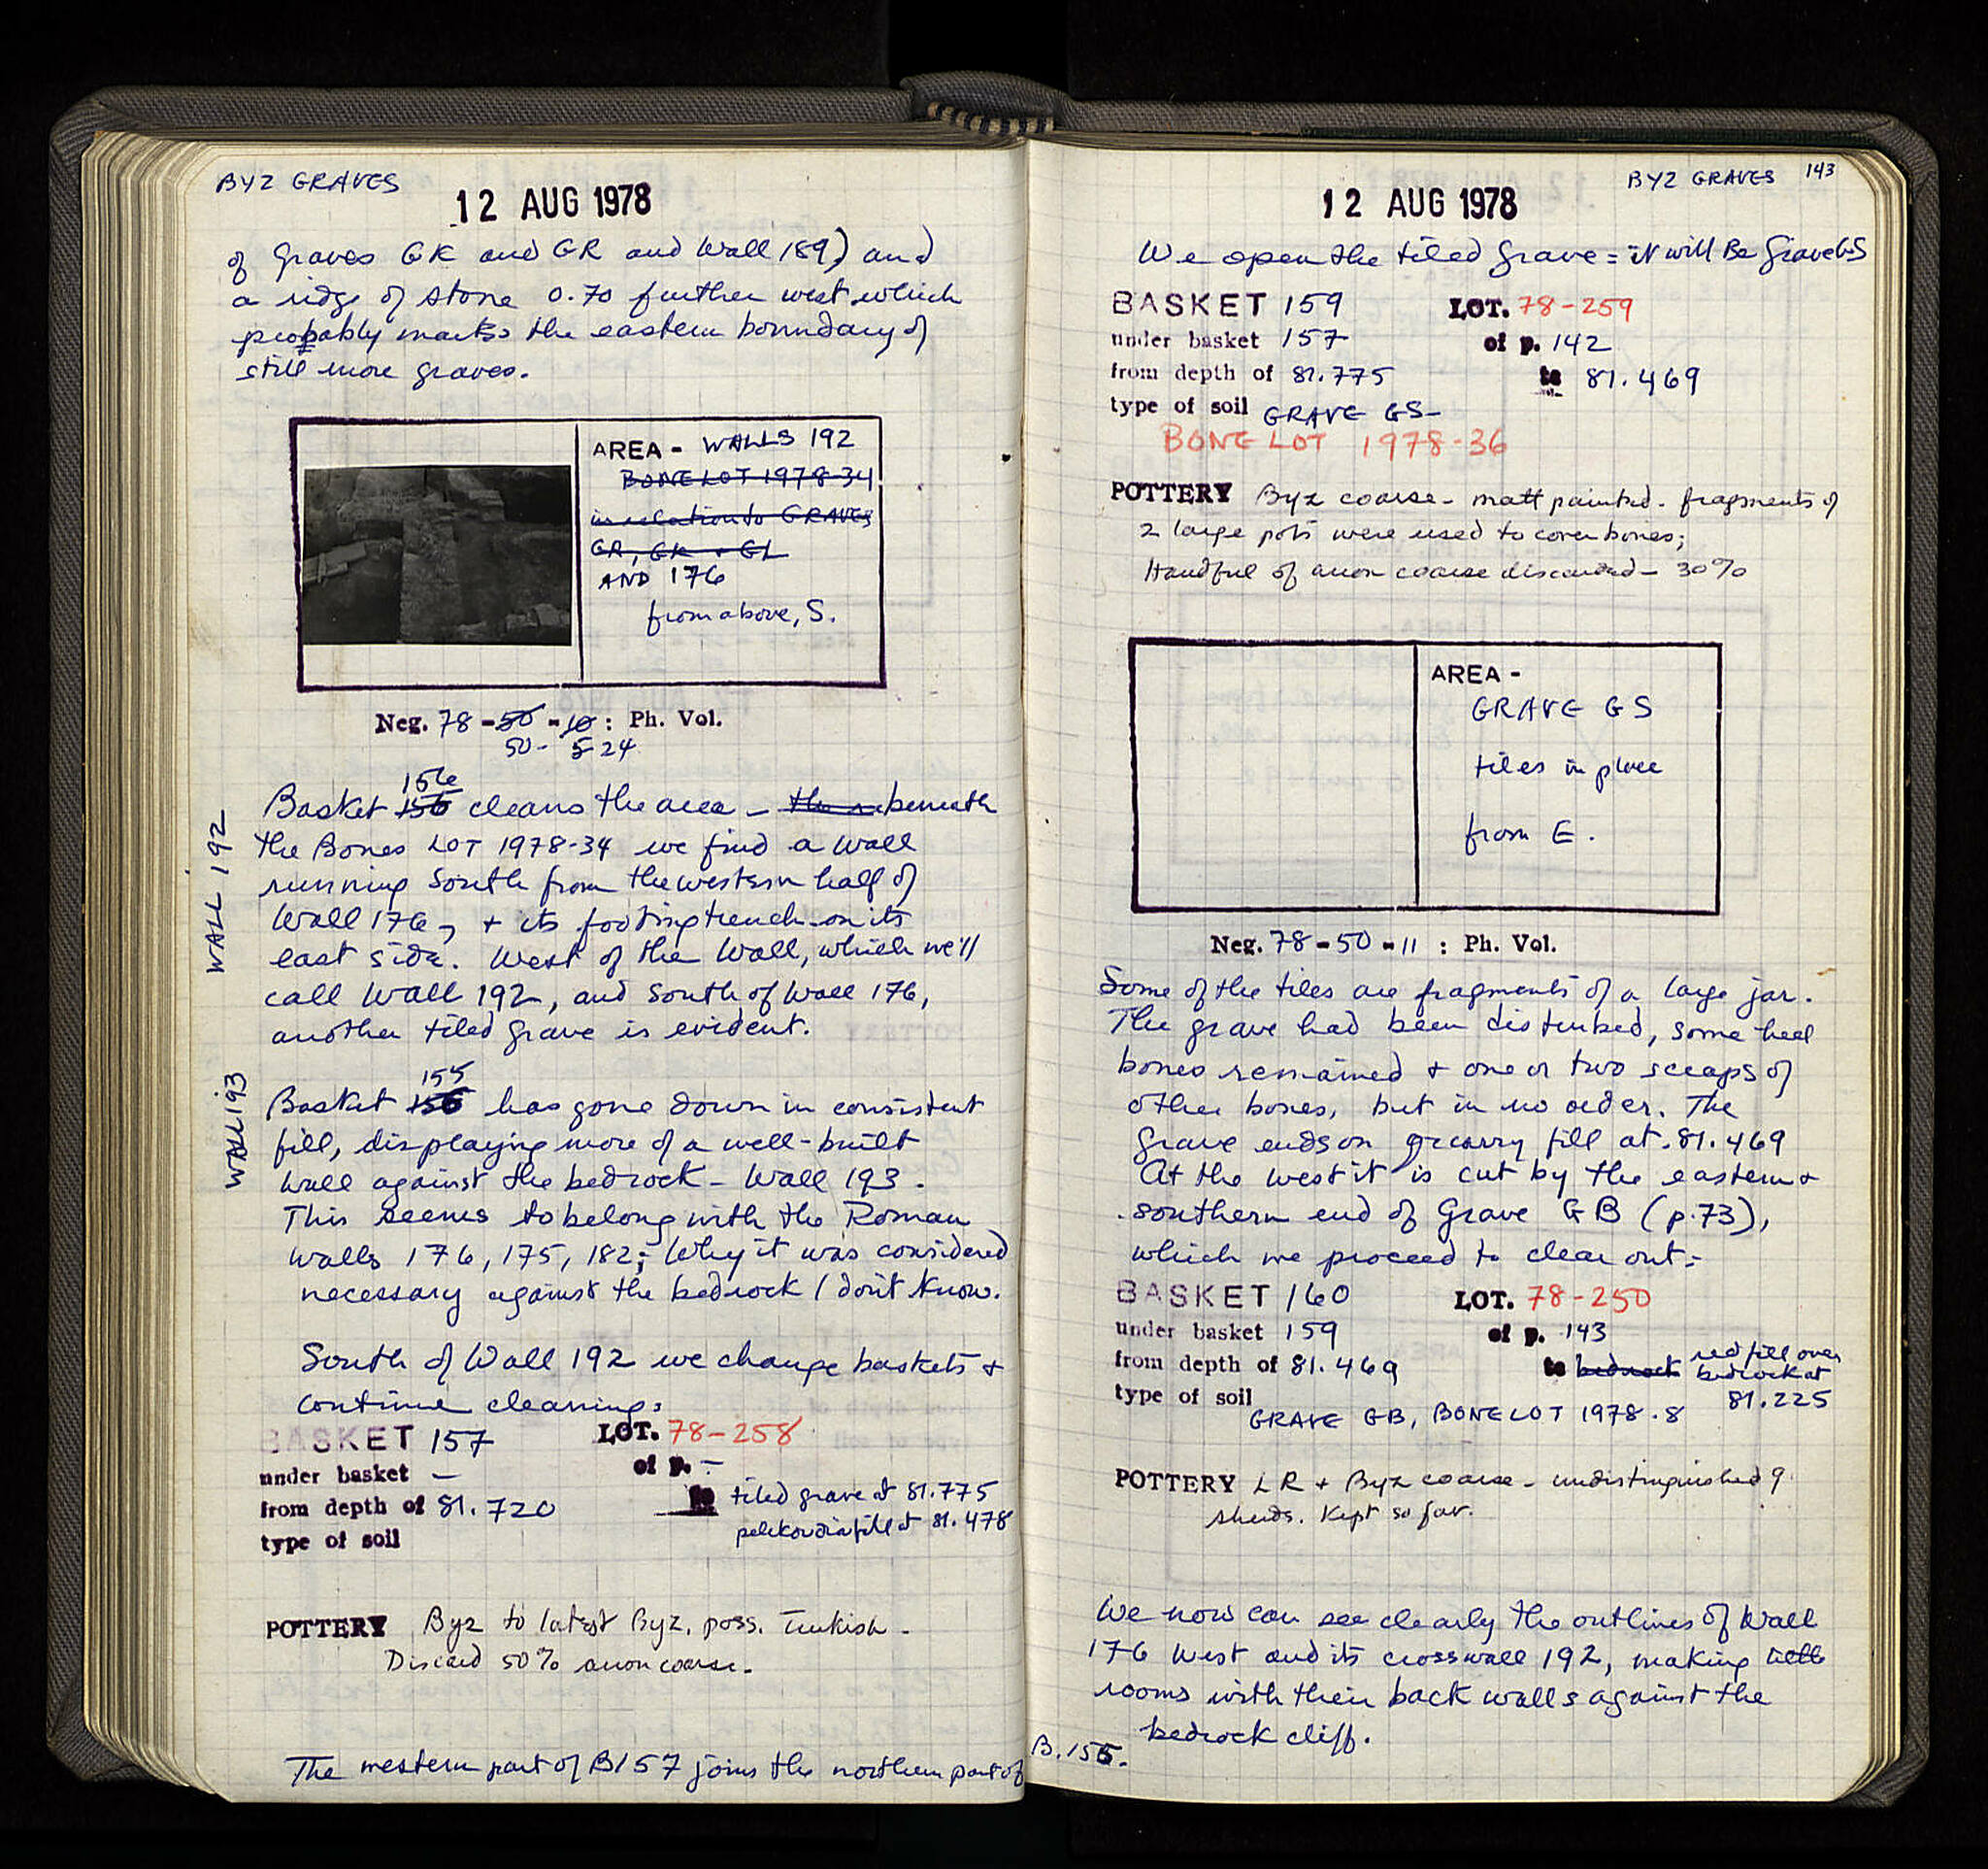 BYZ GRAVES
12 AUG 1978
of graves GK and GR and Wall 189) and
a ridge of stone 0.70 further west which
probably marks the eastern boundary of
still more graves.
AREA - WALLS 192
BONE LOT 1978-34
in relation to GRAVES
GR, GK + GL
AND 176
from above, S.
Neg. 78 - 50 - 10 : Ph. Vol.
50 - 5 24
156
Basket 156 cleans the area - the beneath
the Bones LOT 1978-34 we find a wall
running South from the western half of
Wall 176, + its footing trench on its
east side. West of the Wall, which we'll
call Wall 192, and South of Wall 176,
another tiled grave is evident.
WALL 192
155
Basket 156 has gone down in consistent
fill, displaying more of a well-built
wall against the bedrock - Wall 193.
This seems to belong with the Roman
walls 176, 175, 182; Why it was considered
necessary against the bedrock I don't know.
WALL 193
South of Wall 192 we change baskets +
continue cleaning:
BASKET 157 LOT. 78-258
under basket — of p. —
from depth of 81.720 to tiled grave at 81.775
pelekoudia fill at 81.478
type of soil
POTTERY Byz to latest Byz, poss. Turkish -
Discard 50% anon coarse.
The western part of B157 joins the northern part of B.155.
BYZ GRAVES 143
12 AUG 1978
We open the tiled Grave = it will Be Grave GS
BASKET 159 LOT. 78-259
under basket 157 of p. 142
from depth of 81.775 to 81.469
type of soil GRAVE GS -
BONE LOT 1978-36
POTTERY Byz coarse - matt painted - fragments of
2 large pots were used to cover bones;
Handful of anon coarse discarded - 30%
AREA -
GRAVE GS
tiles in place
from E.
Neg. 78 - 50 - 11 : Ph. Vol.
Some of the tiles are fragments of a large jar.
The grave had been disturbed, some heel
bones remained + one or two scraps of
other bones, but in no order. The
grave ends on quarry fill at 81.469
At the west it is cut by the eastern +
southern end of Grave GB (p.73),
which we proceed to clear out:
BASKET 160 LOT. 78-250
under basket 159 of p. 143
from depth of 81.469 to bedrock red fill over
bedrock at
81.225
type of soil
GRAVE GB, BONE LOT 1978.8
POTTERY LR + Byz coarse - undistinguished 9
sherds. Kept so far.
We now can see clearly the outlines of Wall
176 West and its crosswall 192, making little
rooms with their back walls against the
bedrock cliff.